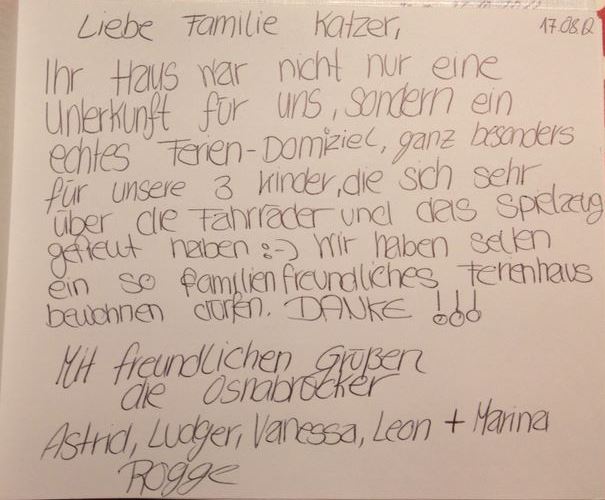 Liebe Familie Katzer,
17.08.12
Ihr Haus war nicht nur eine
Unterkunft für uns, sondern ein
echtes Ferien-Domiziel, ganz besonders
für unsere 3 Kinder, die sich sehr
über die Fahrräder und das Spielzeug
gefreut haben :-) Wir haben selten
ein so familienfreundliches Ferienhaus
bewohnen dürfen. DANKE !!!
Mit freundlichen Grüßen
die Osnabrücker
Astrid, Ludger, Vanessa, Leon + Marina
Rogge